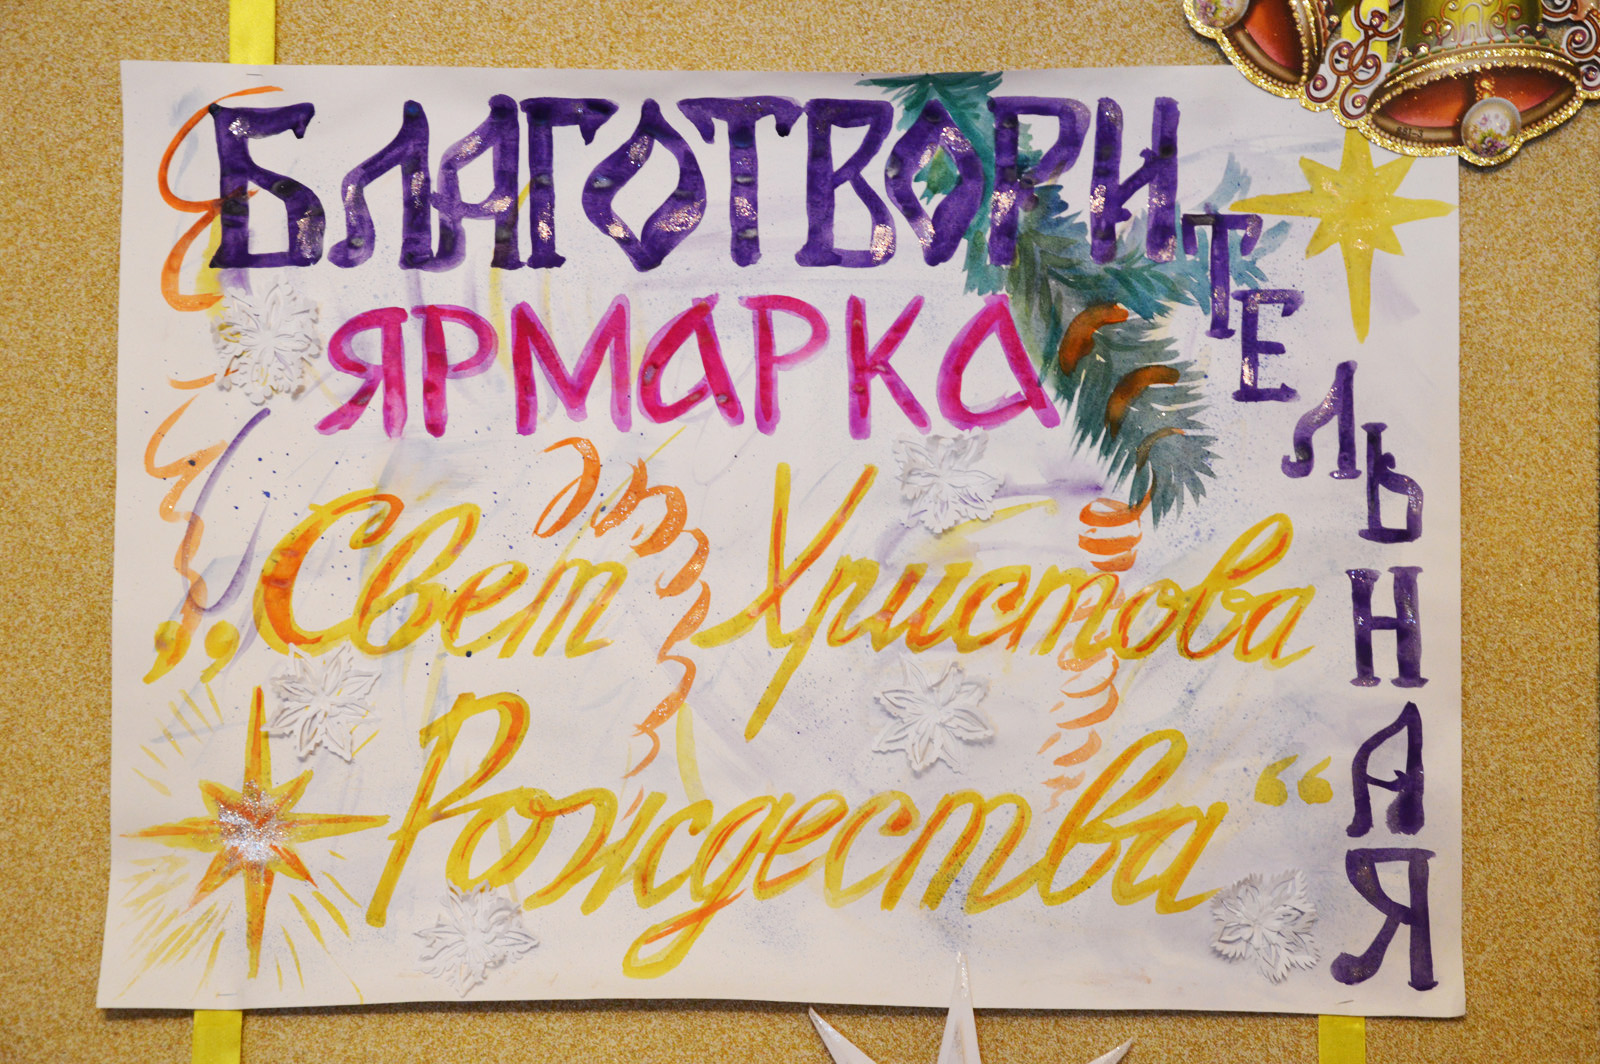 БЛАГОТВОРИТЕЛЬНАЯ
ЯРМАРКА
„Свет Христова
Рождества“